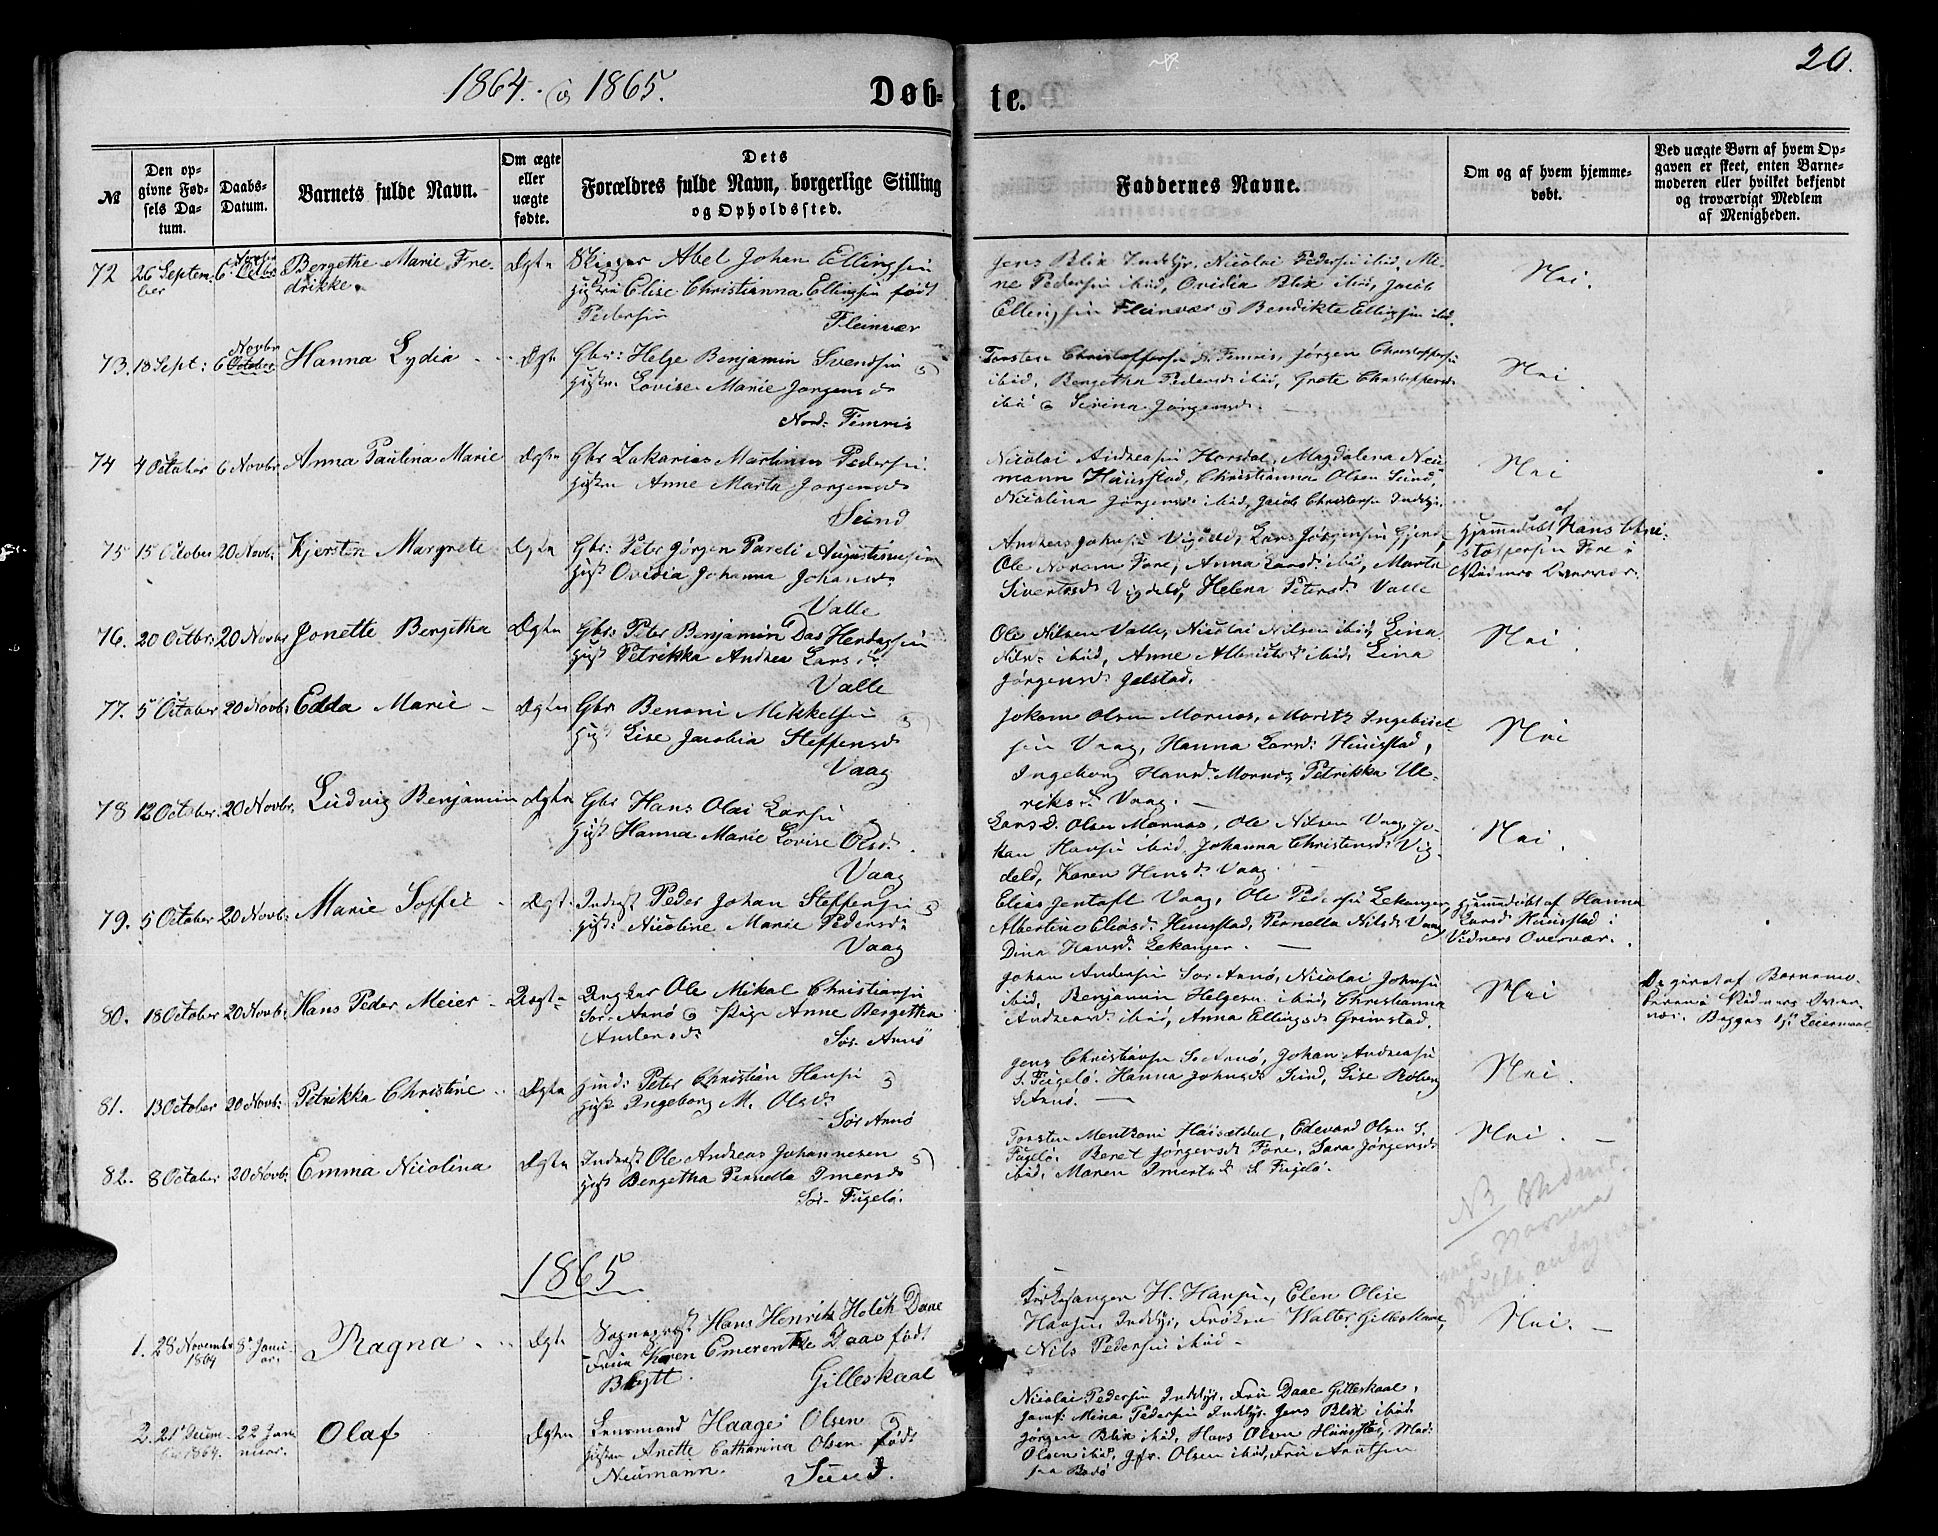 1864. & 1865.
Døb-
te.
20.
№
Den op-
givne Fød-
sels Da-
tum.
Daabs-
Datum.
Barnets fulde Navn.
Om ægte
eller
uægte
fødte.
Dets
Forældres fulde Navn, borgerlige Stilling
og Opholdssted.
Faddernes Navne.
Om og af hvem hjemme-
døbt.
Ved uægte Børn af hvem Op-
gaven er skeet, enten Barne-
moderen eller hvilket bekjendt
og troværdigt Medlem
af Menigheden.
72
26 Septem-
ber
6
Bergethe Marie Fre-
drikke.
Ægte
Abel Johan Ellingsen
Elise Christianna Ellingsen født
Pedersen
Fleinvær
Jens Blix Indyr, Nicolai Pedersen ibid, Mi-
ne Pedersen ibid, Ovidia Blix ibid, Jacob
Ellingsen Fleinvær & Bendikte Ellingsen ibid.
Nei.
73.
18 Sept:
6 Novbr
October
Hanna Lydia
Ægte
Gbr: Helge Benjamin Svendsen
Lovise Marie Jørgensd
Nord-
Torsten Christoffersen N. Jørgen Christoffersen
ibid, Bergetha Pedersd ibid, Grete Christoffersd
ibid & Serina Jørgensd.
Nei.
74
4 October
6 Novbr
Anna Paulina Marie
Ægte
Gbr Zakarias Martinus Pedersen
Anne Marta Jørgensd
Sund
Nicolai Andreasen Horsdal, Magdalena Neu-
mann Huusstad, Christianna Olsen Sund,
Nicolina Jørgensd ibid, Jacob Christensen Indyr.
Nei
75
15 October
20 Novb:
Kjersten Margrete
Ægte
Gbr: Peter Jørgen Pareli Augustinusen
Ovidia Johanna Johansd.
Valle
Andreas Johnsen Vigdeld, Lars Jørgensen
Ole Fore, Anna Larsd. ibid, Marta
Sivertsd Vigdeld, Helena Petersd Valle
Hjemmedøbt af Hans Chri-
stoffersen Fore i
Vidners Overvær.
76.
20 Octbr:
20 Novbr
Jonette Bergitha
Ægte
Gbr: Peter Benjamin Das
Petrikka Andrea Larsd.
Valle
Ole Nilsen Valle, Nicolai Nilsen ibid, Lina
Nilsd. ibid, Anne ibid, Lina
Jørgensd. Jelstad.
Nei.
77.
5 October
20 Novb:
Edda Marie
Ægte
Gbr Benoni Mikkelsen
Lise Jacobia Steffensd
Vaag
Jokom Olsen Mornæs, Moritz Ingebrigt-
sen Vaag, Hanna Larsd: Huusstad,
Ingeborg Hansd. Mornæs, Petrikka Ul-
riksd. Vaag.
Nei
78
12 October.
20 Novbr.
Ludvig Benjamin
Ægte
Gbr Hans Olai Larsen
Hanna Marie Lovise Olsd.
Vaag
Larsd. Olsen Mornæs, Ole Nilsen Vaag, Jo-
han Hansen ibid, Johanna Christensd. Vig-
deld, Karen Hansd. Vaag.
Nei.
79.
5 October
20 Novb:
Marie Soffie
Ægt:
Inderst Peder Johan Steffensen
Nicoline Marie Pedersd.
Vaag
Elias Jentoft Vaag, Ole Pedersen Lekanger
Albertine Eliasd. Huusstad, Pernella Nilsd. Vaag
Dina Hansd. Lekanger.
Hjemmedøbt af Hanna
Larsd Huusstad i
Vidners Overvær.
80.
18 October
20 Novb:
Hans Peder Meier
Uægte
Ungkar Ole Mikal Christiansen
Sør-Arnø & Pige Anne Bergetha
Andersd:
Sør-Arnø
Johan Andersen Sør Arnø, Nicolai Johnsen
ibid, Benjamin Helgesen ibid, Christianna
Andreasd. ibid, Anna Ellingsd. Grimstad.
Nei
Opgivet af Barnemo-
deren i Vidners Over-
vær. Begges 1ste Leiermaal
81.
13 October
20 Novb:
Petrikka Christine
Ægte
Peter Christian Hansen
Ingeborg M. Olsd:
Sør Arnø
Jens Christiansen S. Arnø, Johan Andreasen
S. Fugelø. Hanna Johnsd: Sund, Lise
S. Arnø.
Nei.
82.
8 October
20 Novb:
Emma Nicolina
Ægte
Inderst Ole Andreas Johannesen
Bergetha Pernella Imersd
Sør-Fugelø.
Torsten Mentzoni, Edevard Olsen S.
Fugelø. Beret Jørgensd Fore, Sara Jørgensd
ibid, Maren S. Fugelø.
Nei.
NB
1865
1.
28 Novembr
1864
8 Janu-
ar:
Ragna
Ægte
Sognepræst Hans Henrik Holch Daae
Frue Karen Emerentze Daae født
Blytt.
Gilleskaal
Kirkesanger H. Hansen, Elen Olise
Hansen Indyr, Frøken Walter Gilleskaal,
Nils Pedersen ibid
Nei.
2.
21 Decem-
ber 1864.
22 Jan-
nuar.
Olaf
Ægte
Lensmand Haage Olsen
Anette Catharina Olsen født
Neumann.
Sund.
Nicolai Pedersen Indyr, Fru Daae Gilleskaal,
Jomf: Mina Pedersen Indyr, Jens Blix ibid.
Jørgen Blix ibid, Hans Olsen Huusstad, Mad:
Olsen ibid, Jfr. Olsen ibid, Fru
fra Bodø